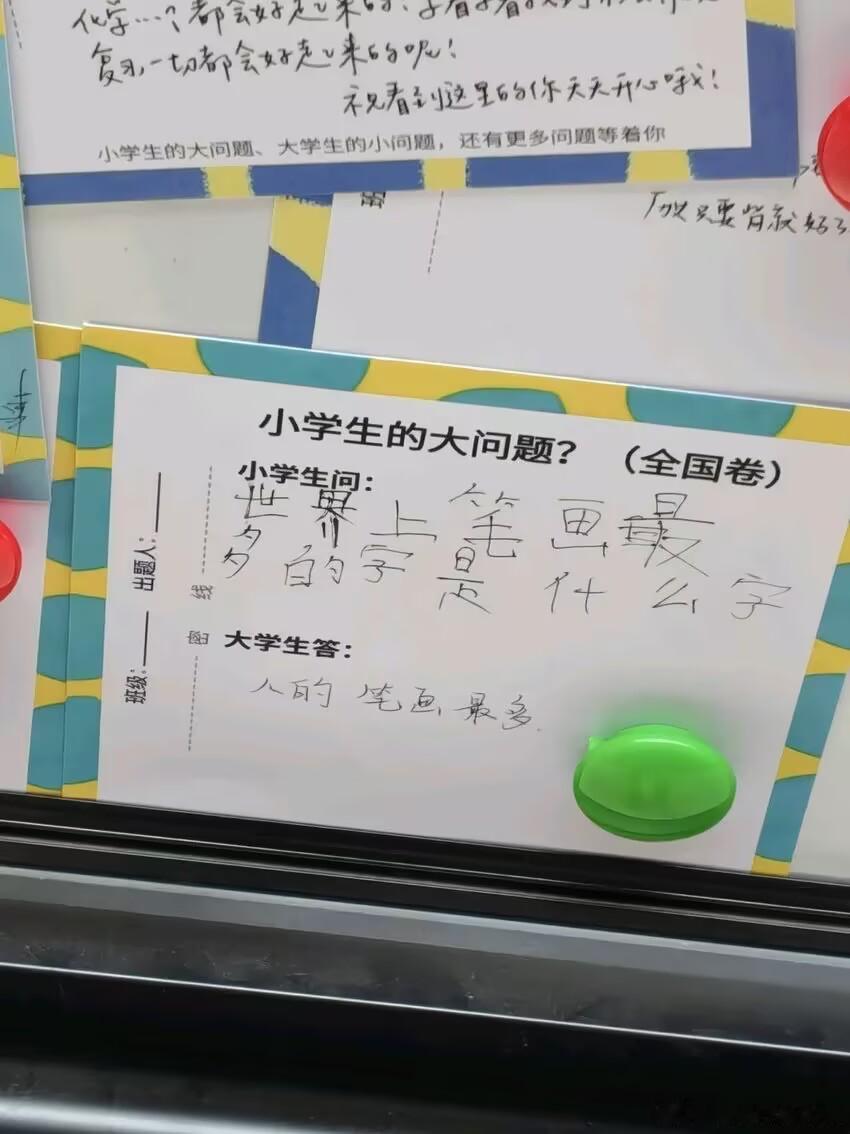 化学…？都会好起来的！
复习，一切都会好起来的呢！
祝看到这里的你天天开心哦！
小学生的大问题、大学生的小问题，还有更多问题等着你
密
只要背就好了
小学生的大问题？（全国卷）
小学生问：
世界上笔画最
多的字是什么字
大学生答：
人的笔画最多.
出题人：
班级：
线
密